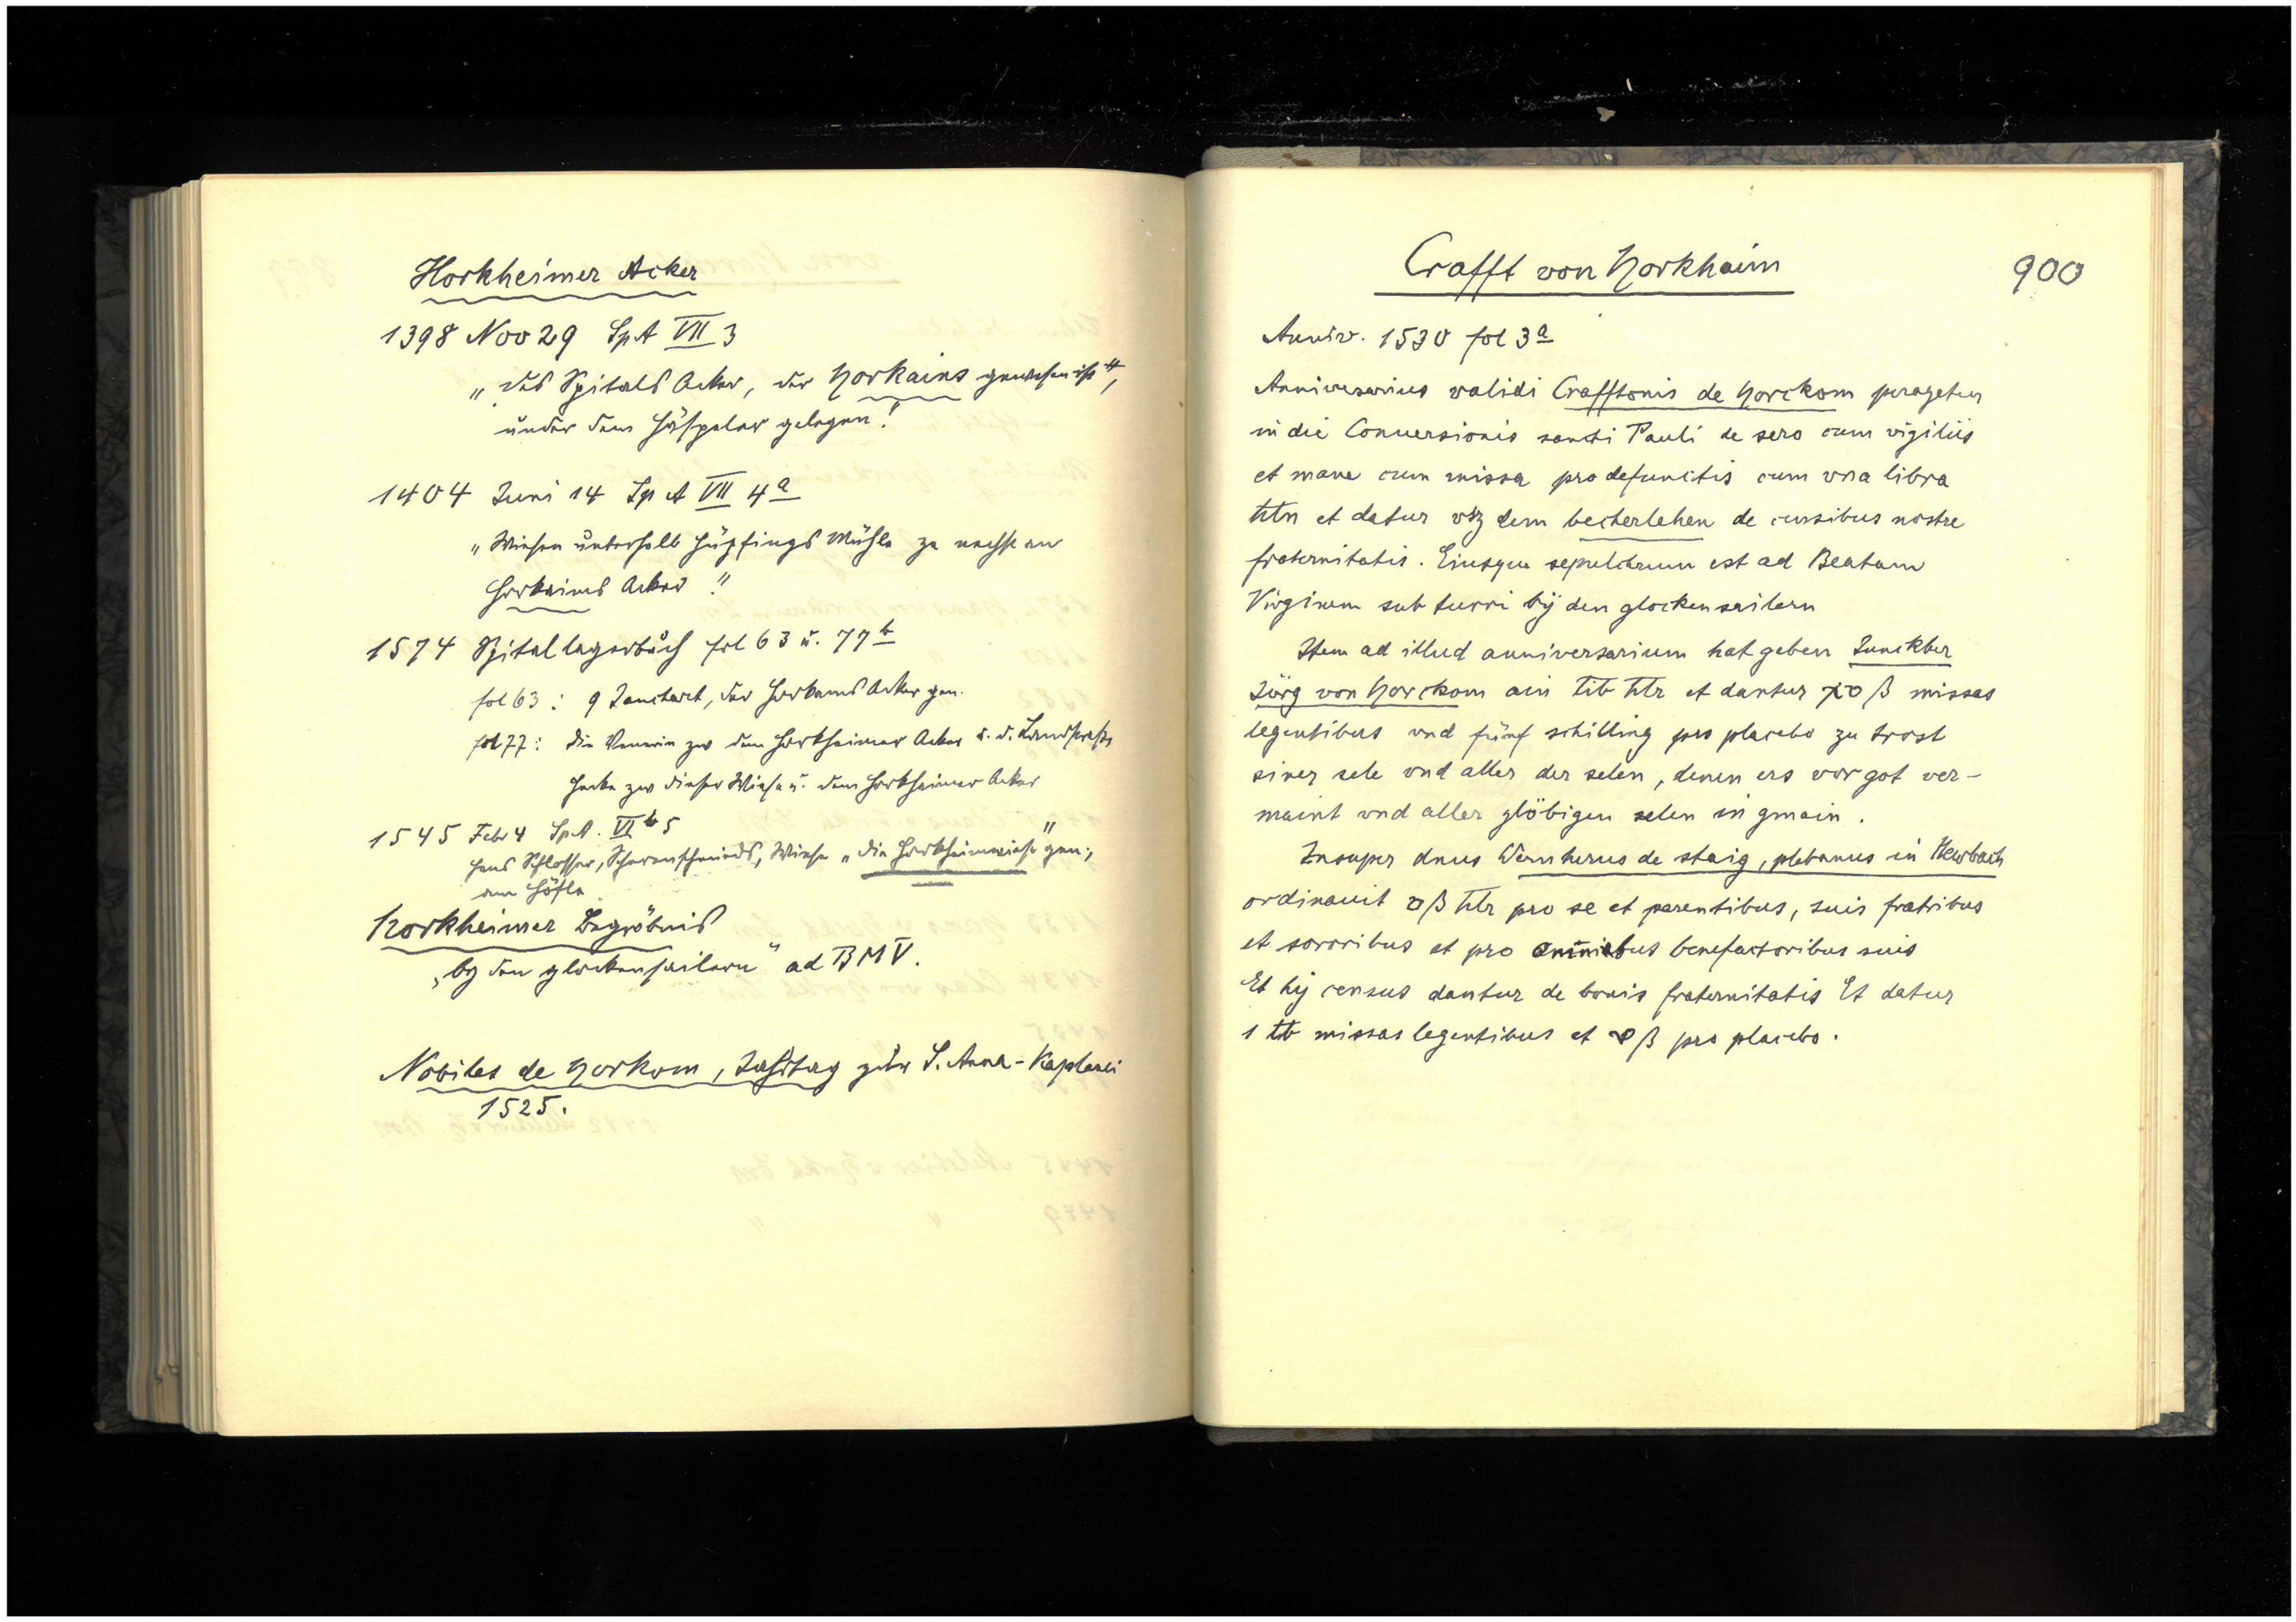 Horkheimer Acker
1398 Nov 29 SpA VII 3
„des Spitals Acker, der Horkains gewesen ist",
under dem Häspeler gelegen!
1404 Juni 14 SpA VII 4a
„Wiesen unterhalb Hüpfings Mühle ze nechst an
Horkaims Acker"
1574 Spitallagerbuch fol 63 u. 77b
fol 63: 9 Jauchart, der Horkams Acker gen.
fol 77: die zw dem Horkheimer Acker u. d. Landstraße
Hecke zw dieser Wiese u. dem Horkheimer Acker
1545 Febr 4 SpA. VIb 5
Hans Schlosser, Wiese „die Horkheimwiese" gen.,
am Höfle
Horkheimer Begräbnis
„by den glockensailern" ad BMV.
Nobiles de Horkom, Jahrtag zur S. Anna-Kaplanei
1525.
Crafft von Horkhaim
900
Anniv. 1530 fol 3a
Anniversarius validi Crafftonis de Horckom peragetur
in die Conuersionis sancti Pauli de sero cum vigiliis
et mane cum missa pro defunctis cum vna libra
hlr et datur vsz dem becherlehen de cursibus nostre
fraternitatis. Eiusque sepulchrum est ad Beatam
Virginem sub turri by den glockensailern
Item ad illud anniversarium hat geben Junckher
Jörg von Horckom ain lib hlr et dantur xv ß missas
legentibus vnd fünf schilling pro placebo zu trost
siner sele vnd aller der selen, denen ers vor got ver-
maint vnd aller glöbigen selen in gmain.
Insuper dnus Wernherus de staig, plebanus in
ordinauit v ß hlr pro se et parentibus, suis fratribus
et sororibus et pro omnibus benefactoribus suis
Et hij census dantur de bonis fraternitatis Et datur
1 lb missas legentibus et v ß pro placebo.